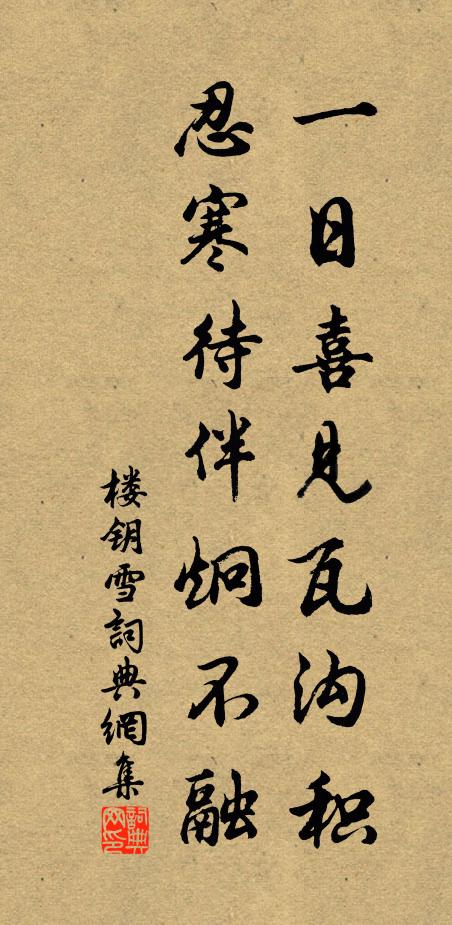 一日喜见瓦沟积
忍寒待伴炯不融
楼钥雪詞典網集
詞典网印